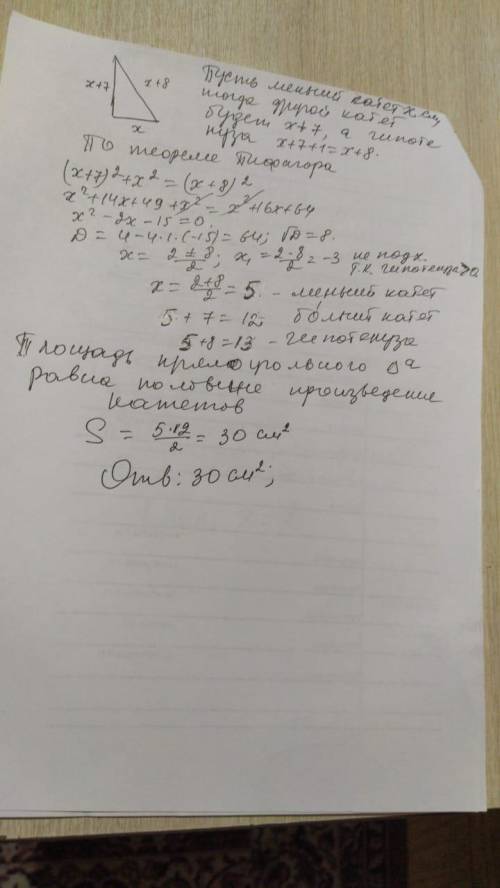 x+7
x+8
x
Пусть менший катет x см,
тогда другой катет
будет x+7, а гипоте
нуза x+7+1=x+8.
По теореме Пифагора
(x+7)²+x²=(x+8)²
x²+14x+49+x²=x²+16x+64
x²-2x-15=0
D=4-4·1·(-15)=64; √D=8.
x=2±8/2; x₁=2-8/2=-3 не подх.
т.к. гипотенуза>0
x=2+8/2=5. - менший катет
5+7=12 болший катет
5+8=13 - гипотенуза
Площадь прямоугольного Δа
равна половине произведение
катетов
S=5·12/2=30 см²
Отв: 30 см²;